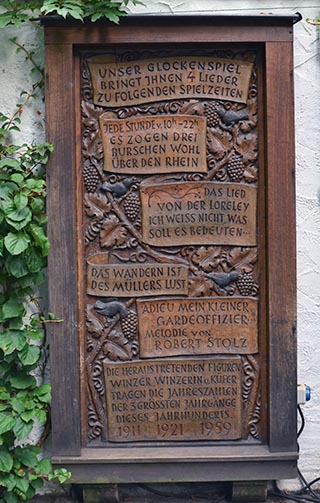 UNSER GLOCKENSPIEL
BRINGT IHNEN 4 LIEDER
ZU FOLGENDEN SPIELZEITEN
JEDE STUNDE v. 10ʰ-22ʰ
ES ZOGEN DREI
BURSCHEN WOHL
ÜBER DEN RHEIN
DAS LIED
VON DER LORELEY
ICH WEISS NICHT WAS
SOLL ES BEDEUTEN...
DAS WANDERN IST
DES MÜLLERS LUST
ADIEU MEIN KLEINER
GARDEOFFIZIER
MELODIE VON
ROBERT STOLZ
DIE HERAUSTRETENDEN FIGUREN
WINZER WINZERIN U. KÜFER
TRAGEN DIE JAHRESZAHLEN
DER 3 GRÖSSTEN JAHRGÄNGE
DIESES JAHRHUNDERTS...
1911 1921 1959